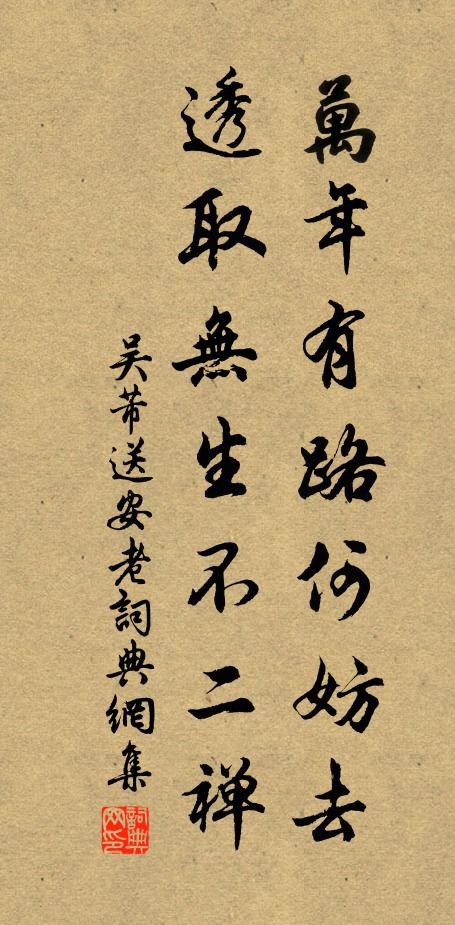 萬年有路何妨去
透取無生不二禅
吴芾送安老詞典網集
詞典网印